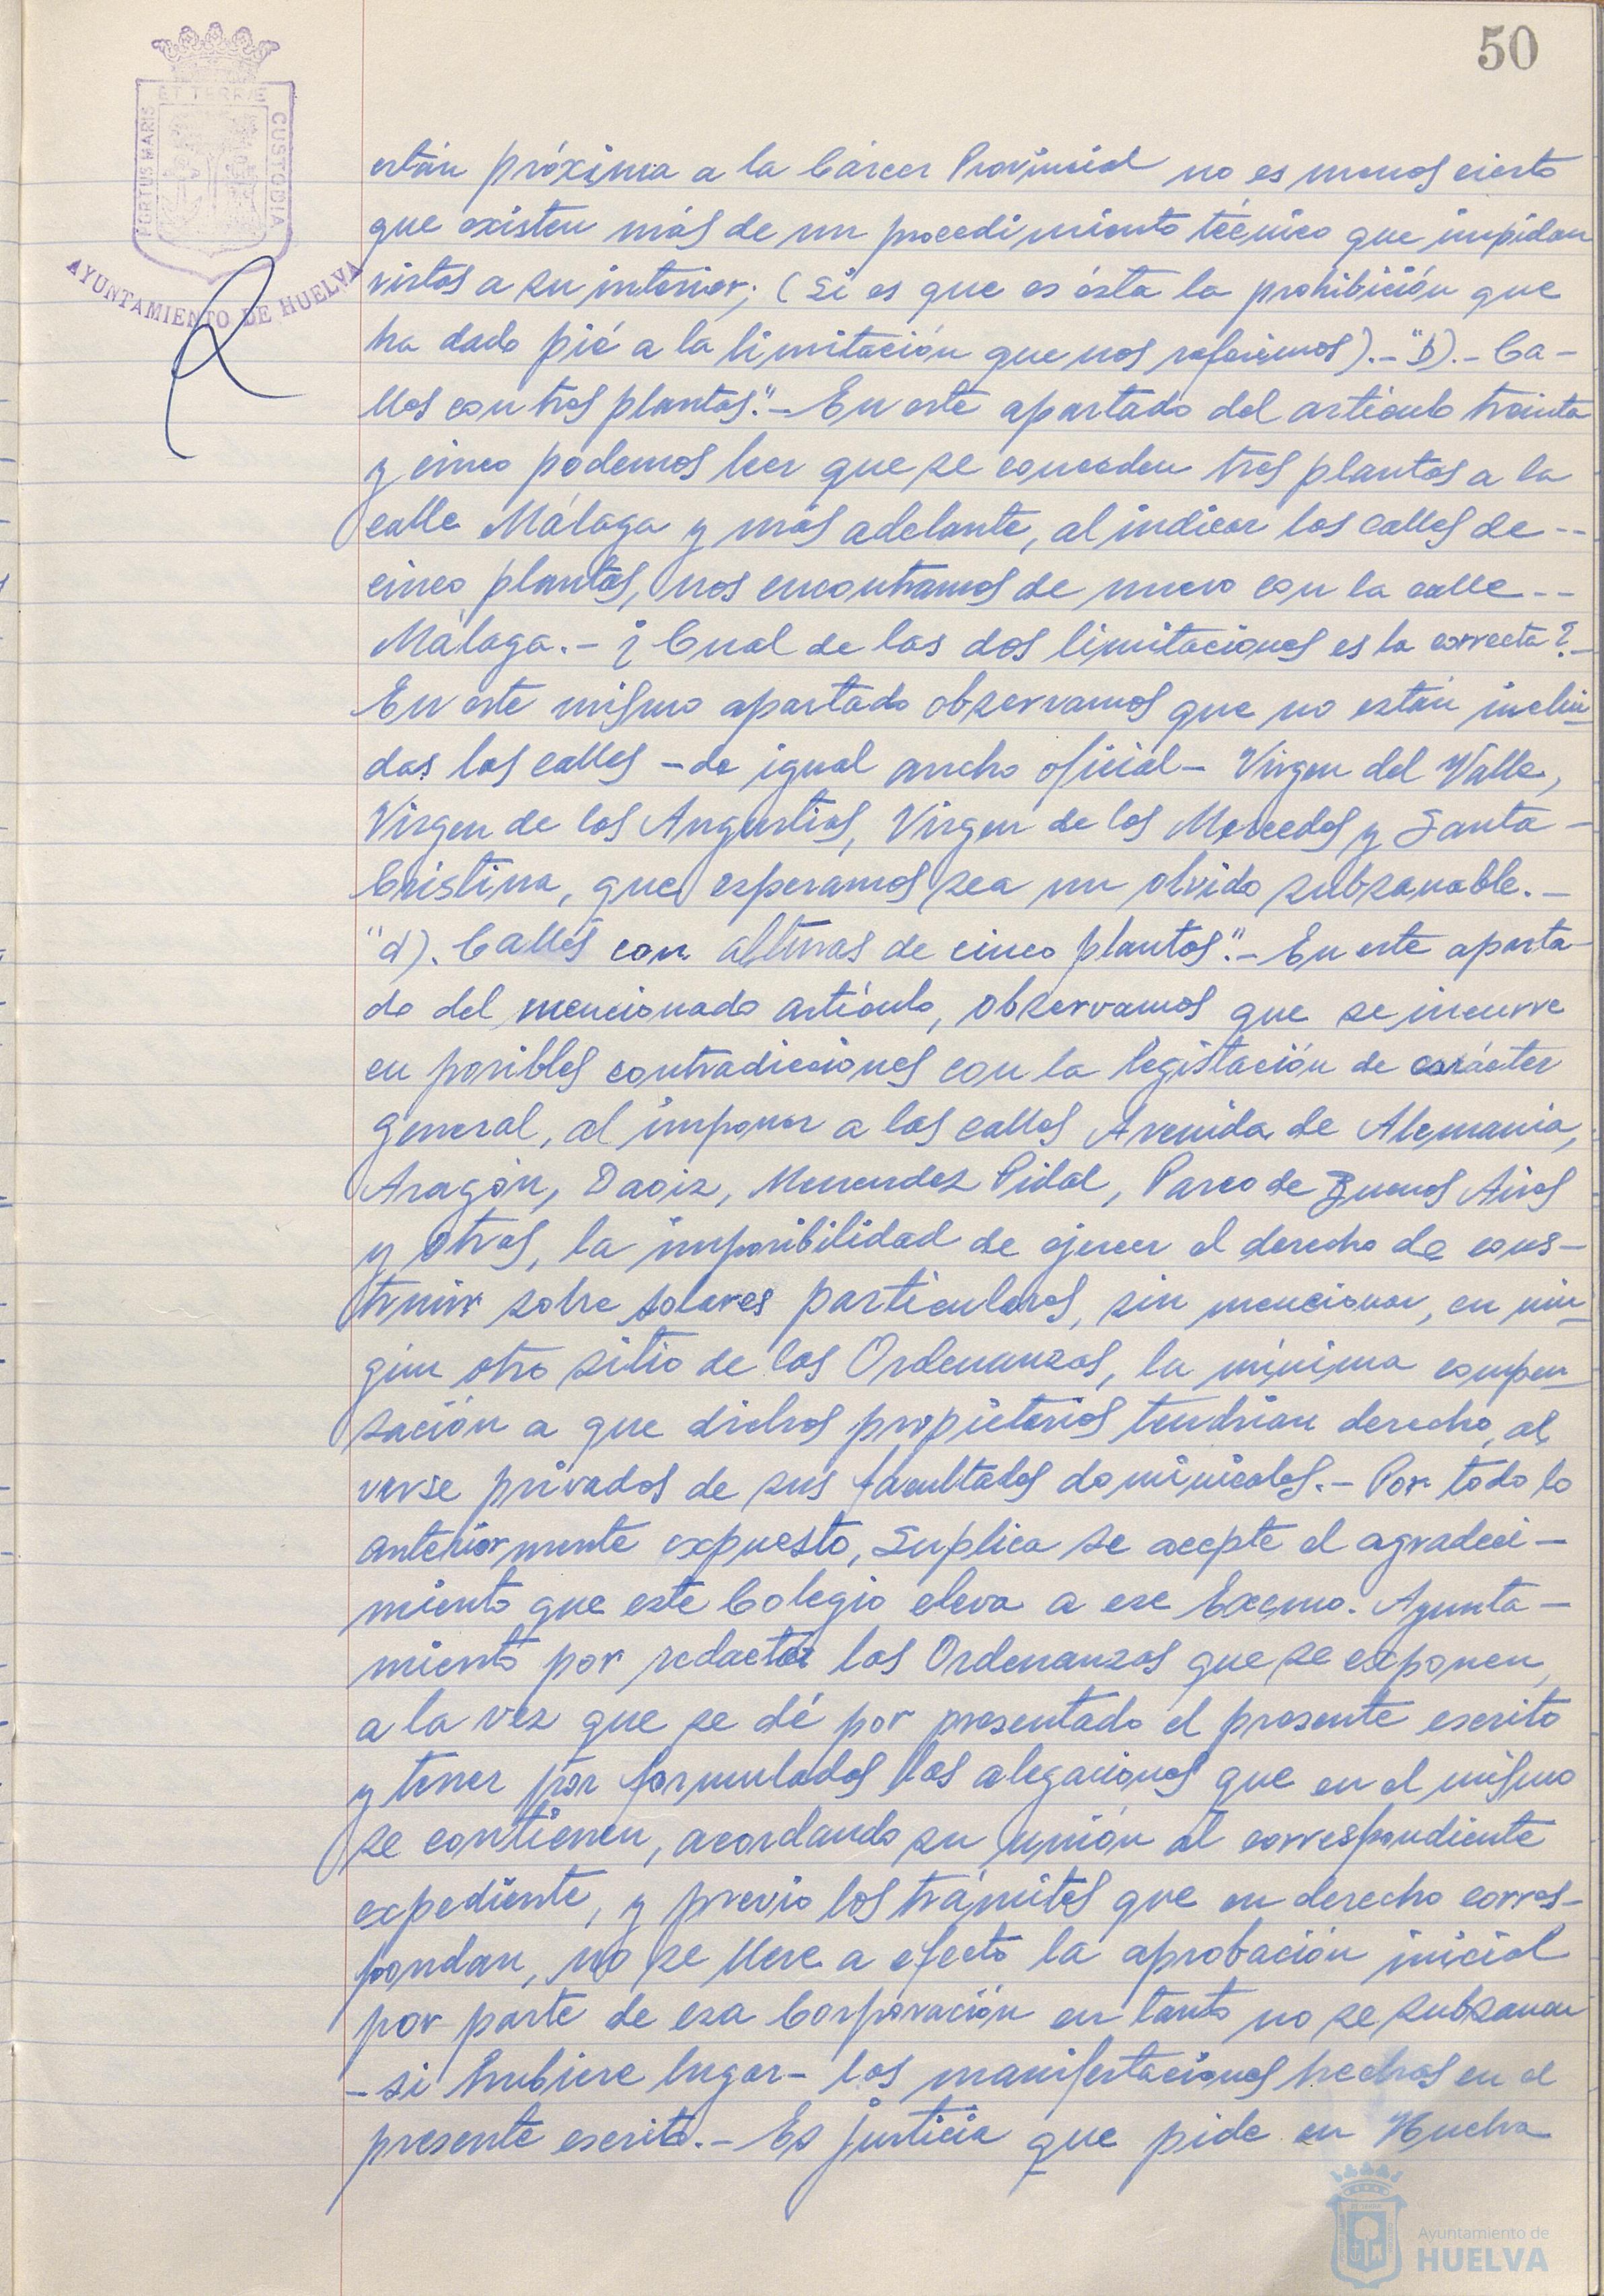 50
ET TERRÆ
PORTUS MARIS
CUSTODIA
AYUNTAMIENTO DE HUELVA
están próxima a la Cárcer Provincial no es menos cierto
que existen más de un procedimiento técnico que impidan
vistas a su interior; (si es que es ésta la prohibición que
ha dado pié a la limitación que nos referimos).- "b).- Ca-
lles con tres plantas".- En este apartado del artículo treinta
y cinco podemos leer que se conceden tres plantas a la
calle Málaga y más adelante, al indicar las calles de --
cinco plantas, nos encontramos de nuevo con la calle --
Málaga.- ¿Cual de las dos limitaciones es la correcta?-
En este mismo apartado observamos que no están inclui-
das las calles -de igual ancho oficial- Virgen del Valle,
Virgen de las Angustias, Virgen de las Mercedes y Santa -
Cristina, que esperamos sea un olvido subsanable.-
"d). Calles con alturas de cinco plantas".- En este aparta-
do del mencionado artículo, observamos que se incurre
en posibles contradicciones con la legislación de carácter
general, al imponer a las calles Avenida de Alemania,
Aragón, Daoiz, Menendez Pidal, Paseo de Buenos Aires
y otras, la imposibilidad de ejercer el derecho de cons-
truir sobre solares particulares, sin mencionar, en nin-
gún otro sitio de las Ordenanzas, la mínima compen-
sación a que dichos propietarios tendrían derecho, al
verse privados de sus facultades dominicales.- Por todo lo
anteriormente expuesto, Suplica se acepte el agradeci-
miento que este Colegio eleva a ese Excmo. Ayunta-
miento por redactar las Ordenanzas que se exponen,
a la vez que se dé por presentado el presente escrito
y tener por formuladas las alegaciones que en el mismo
se contienen, acordando su unión al correspondiente
expediente, y previo los trámites que en derecho corres-
pondan, no se lleve a efecto la aprobación inicial
por parte de esa Corporación en tanto no se subsanan
-si hubiere lugar- las manifestaciones hechas en el
presente escrito.- Es justicia que pide en Huelva
Ayuntamiento de
HUELVA